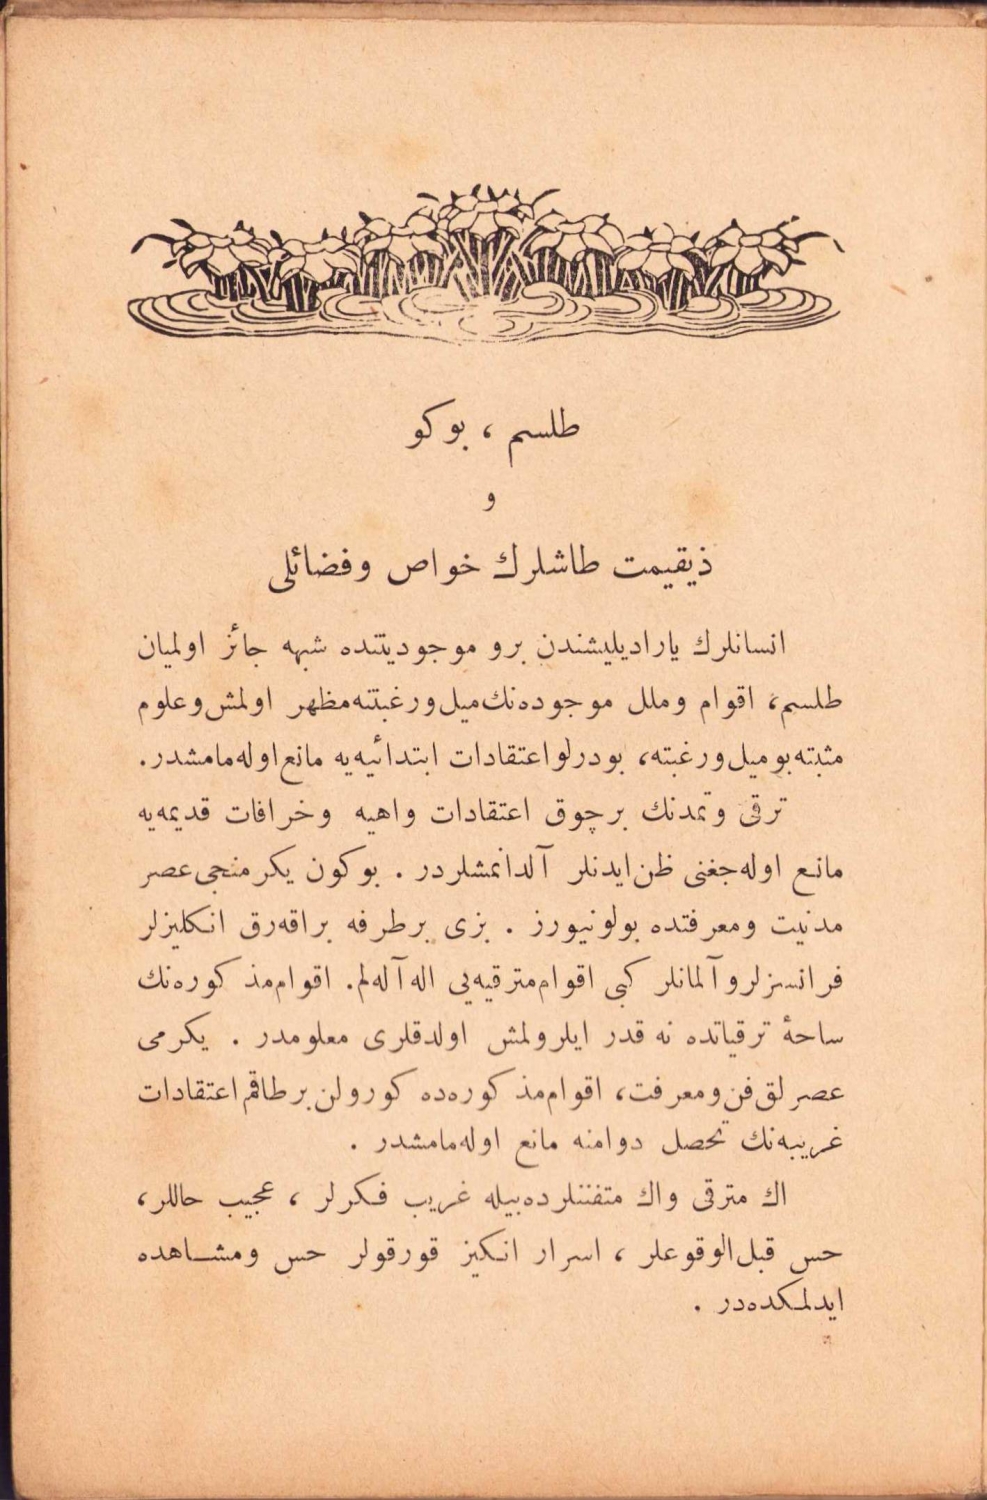 طلسم ، بوكو
و
ذيقيمت طاشلرك خواص وفضائلى
انسانلرك ياراديليشندن برو موجوديتنده شبهه جائز اولميان
طلسم، اقوام وملل موجوده‌نك ميل ورغبتنه مظهر اولمش وعلوم
مثبته بو ميل ورغبته، بودرلو اعتقادات ابتدائيه‌يه مانع اوله‌مامشدر.
ترقى وتمدنك برچوق اعتقادات واهيه وخرافات قديمه‌يه
مانع اوله‌جغنى ظن ايدنلر آلدانمشلردر . بوكون يكرمنجى عصر
مدنيت ومعرفتده بولونيورز . بزى برطرفه براقه‌رق انكليزلر
فرانسزلر و آلمانلر كبى اقوام مترقيه‌يى اله آله‌لم. اقوام مذكوره‌نك
ساحهٔ ترقياتده نه قدر ايلرولمش اولدقلرى معلومدر . يكرمى
عصرلق فن ومعرفت، اقوام مذكوره‌ده كورولن برطاقم اعتقادات
غريبه‌نك تحصل دوامنه مانع اوله‌مامشدر .
اك مترقى واك متفننلرده بيله غريب فكرلر ، عجيب حاللر،
حس قبل‌الوقوعلر ، اسرار انكيز قورقولر حس ومشاهده
ايدلمكده‌در .